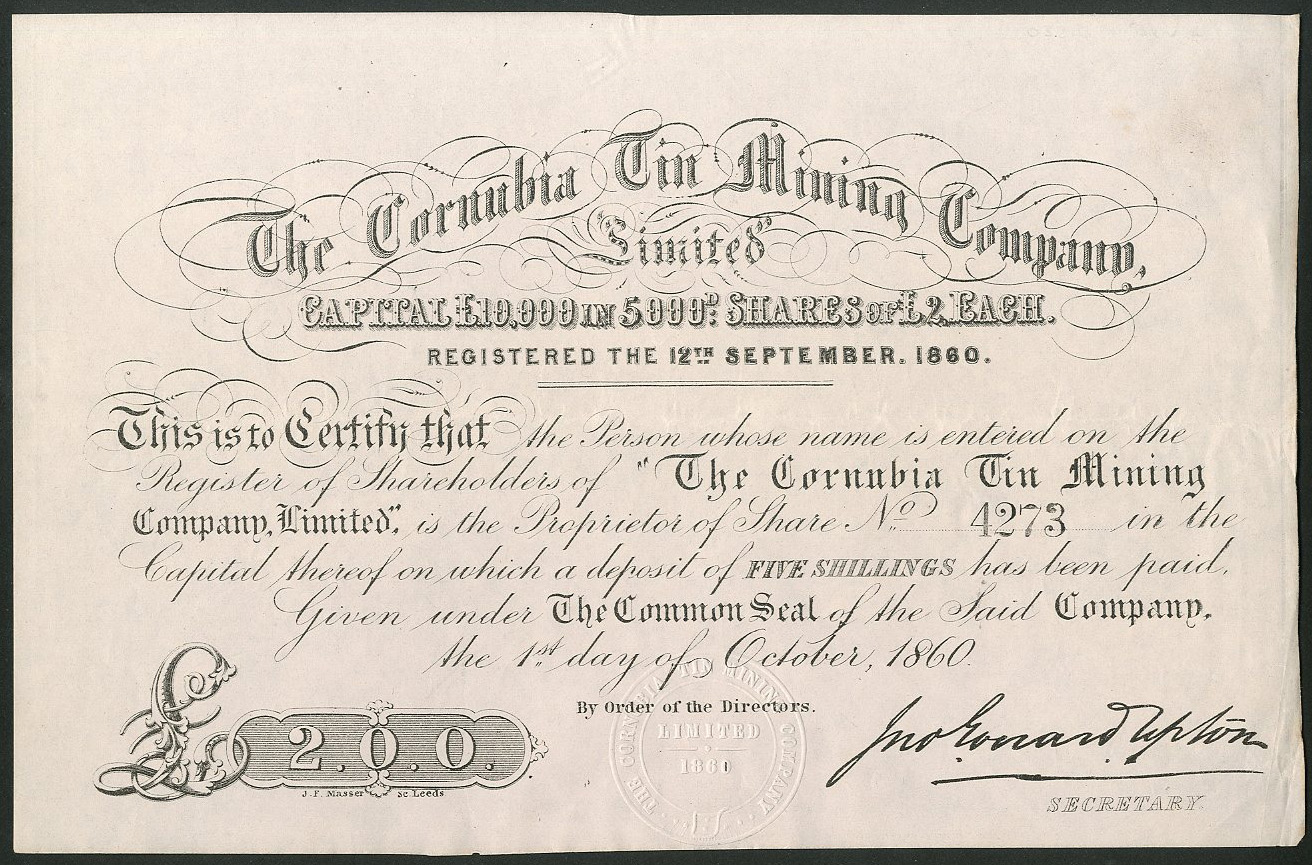 The Cornubia Tin Mining Company,
"Limited"
CAPITAL £10,000 IN 5000D. SHARES OF £2 EACH.
REGISTERED THE 12TH SEPTEMBER. 1860.
This is to Certify that the Person whose name is entered on the
Register of Shareholders of "The Cornubia Tin Mining
Company, Limited", is the Proprietor of Share No. 4273 in the
Capital thereof on which a deposit of FIVE SHILLINGS has been paid,
Given under The Common Seal of the Said Company,
the 1st. day of October, 1860.
By Order of the Directors.
THE CORNUBIA TIN MINING COMPANY
LIMITED
1860
£2.0.0.
J. F. Masser Sc Leeds
Jno Edward Upton
SECRETARY